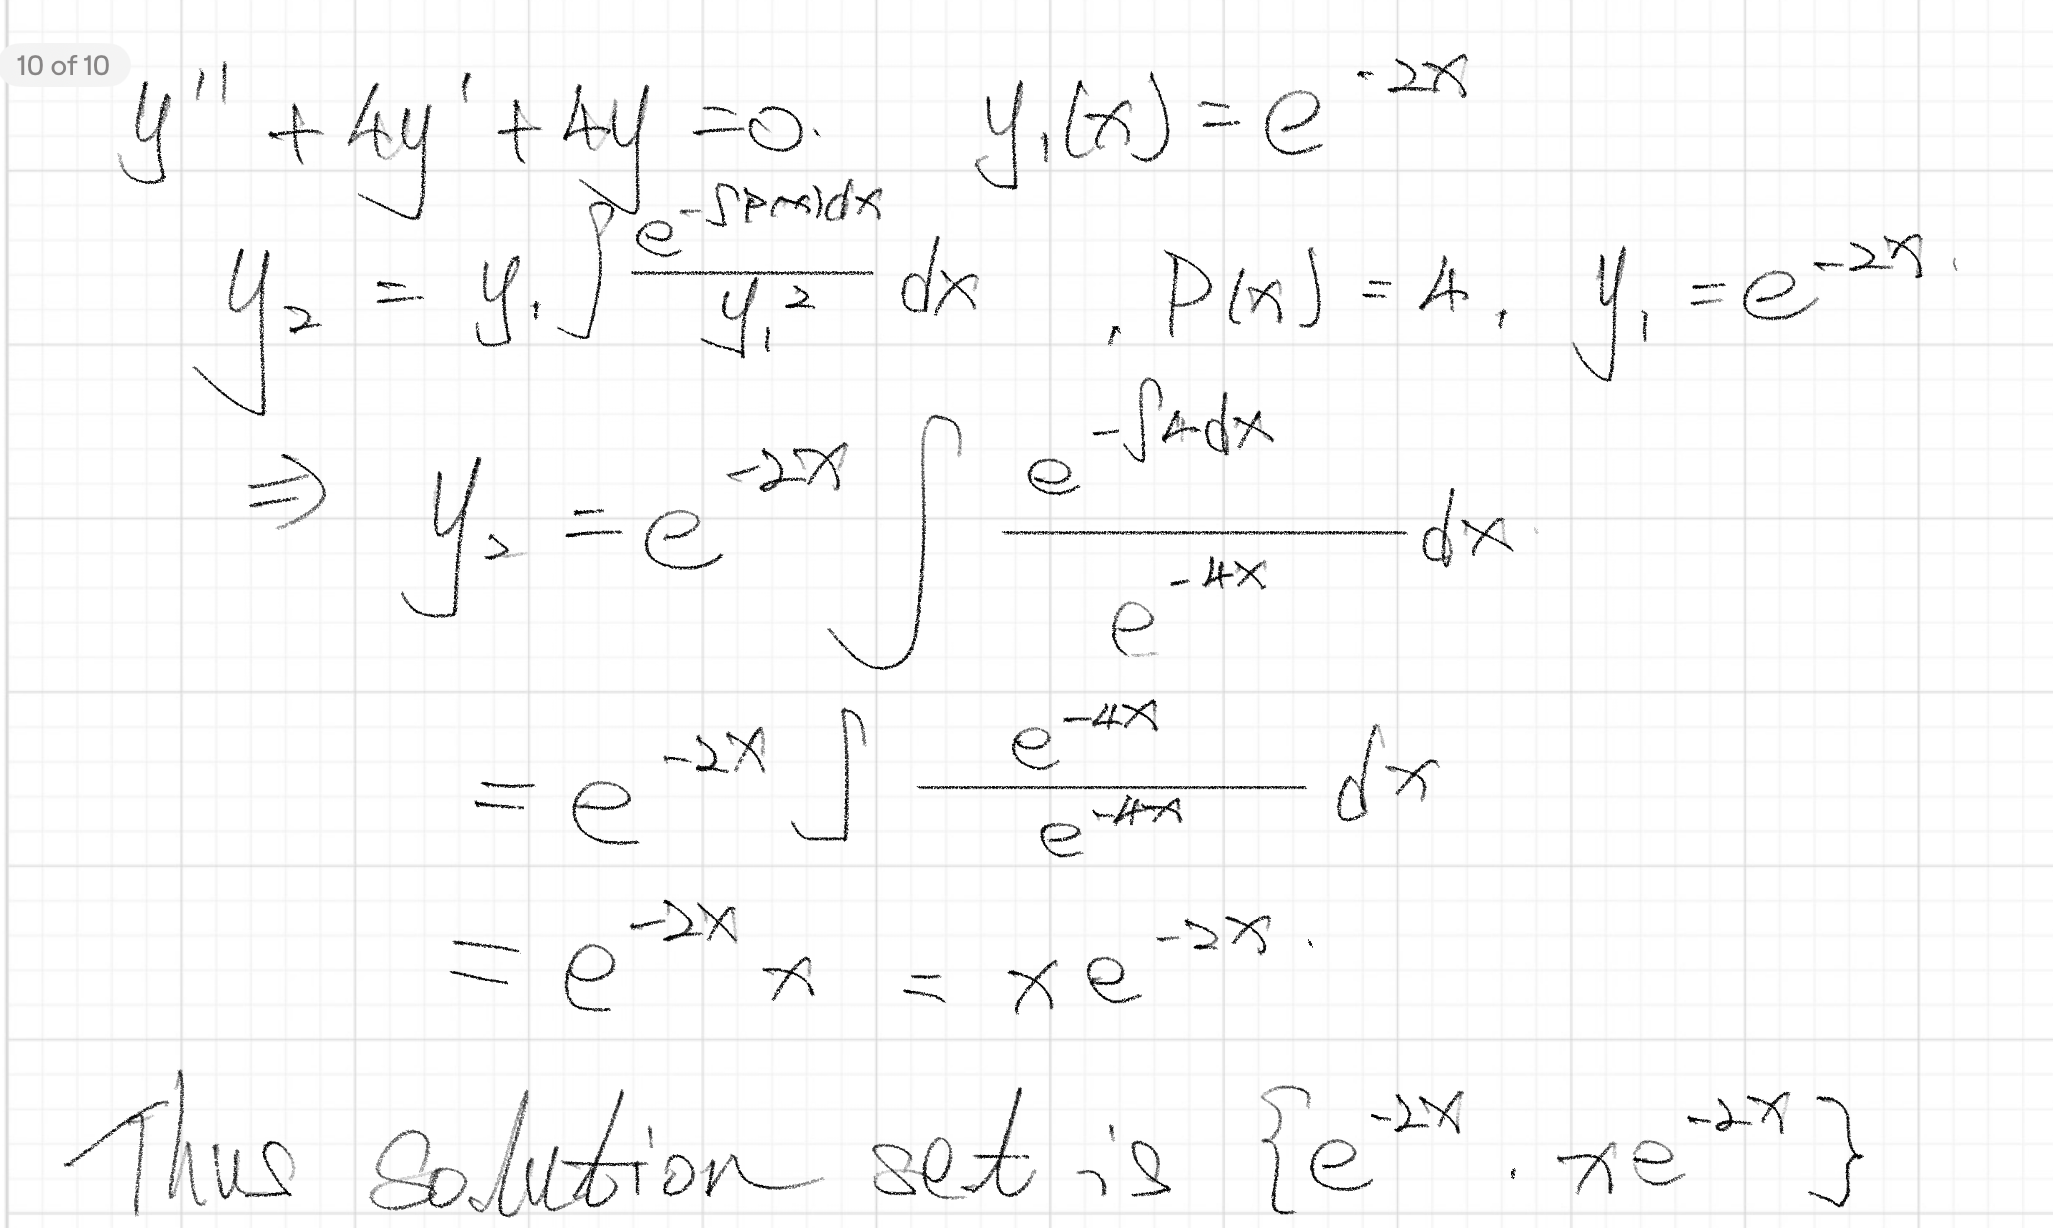 10 of 10
y'' + 4y' + 4y = 0. y₁(x) = e^{-2x}
y₂ = y₁ ∫ \frac{e^{-∫P(x)dx}}{y₁²} dx , P(x) = 4, y₁ = e^{-2x}.
⇒ y₂ = e^{-2x} ∫ \frac{e^{-∫4dx}}{e^{-4x}} dx.
= e^{-2x} ∫ \frac{e^{-4x}}{e^{-4x}} dx
= e^{-2x} x = xe^{-2x}.
Thus solution set is {e^{-2x}, xe^{-2x}}